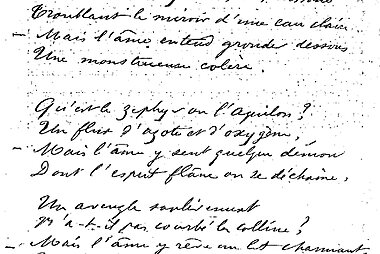 Troublant le miroir d'une eau claire
— Mais l'âme entend gronder dessous
Une monstrueuse colère.
Qu'est le zéphyr ou l'aquilon?
Un flux d'azote et d'oxygène,
— Mais l'âme y sent quelque démon
Dont l'esprit flâne ou se déchaîne.
Un aveugle soulèvement
N'a-t-il pas courbé la colline?
— Mais l'âme y rêve un lit charmant